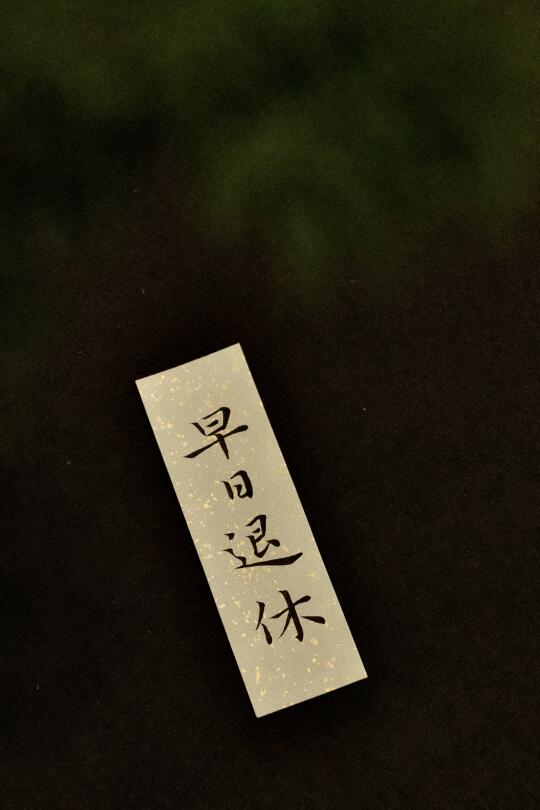 早日退休